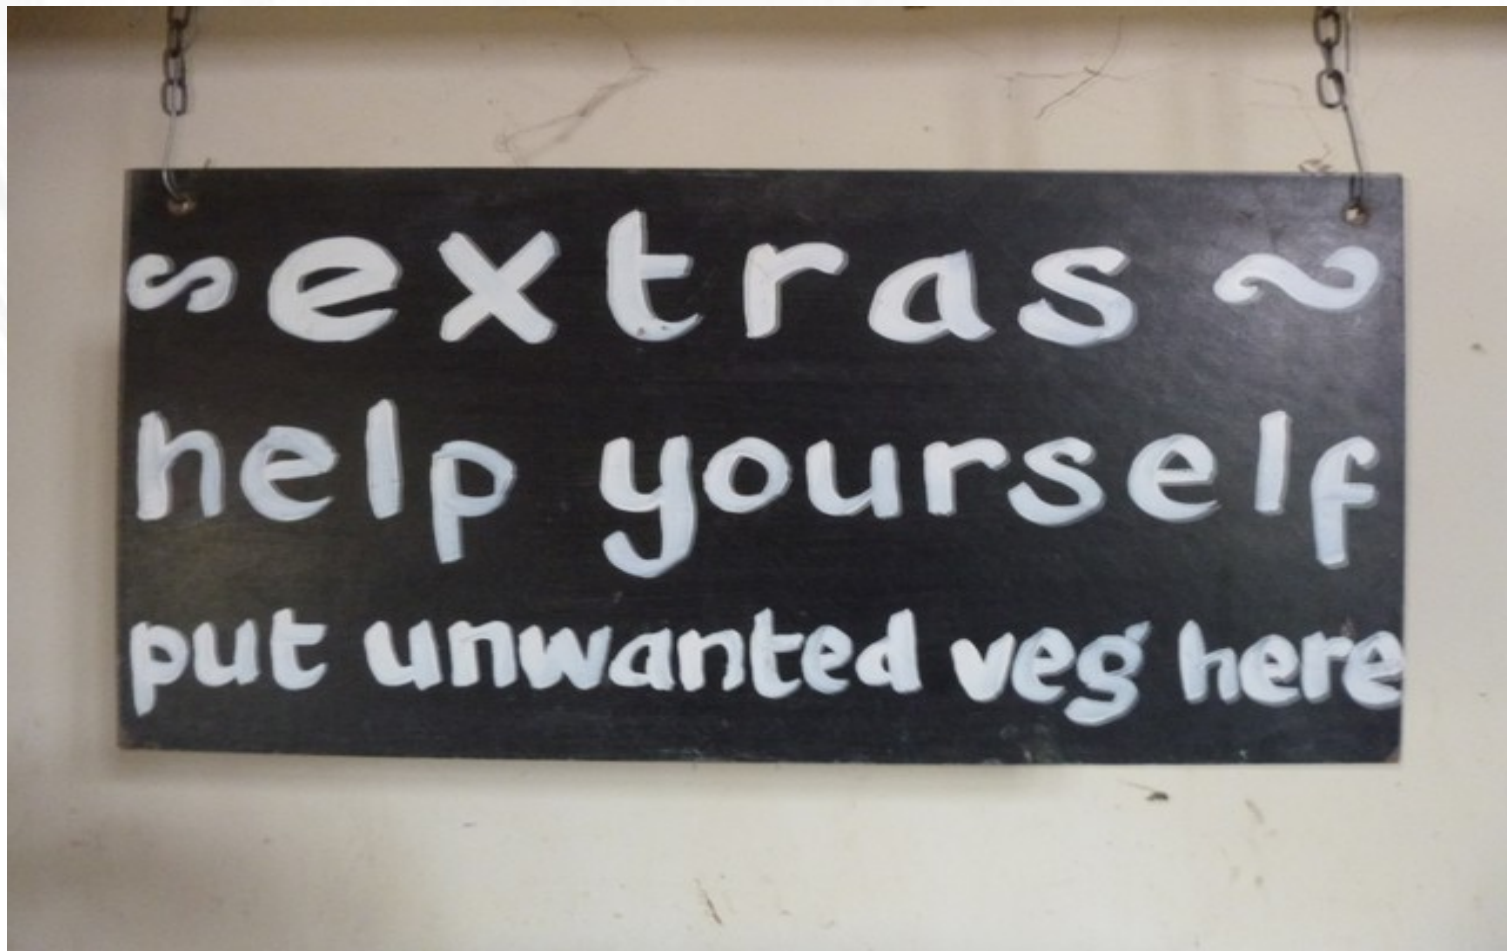 ~ extras ~
help yourself
put unwanted veg here